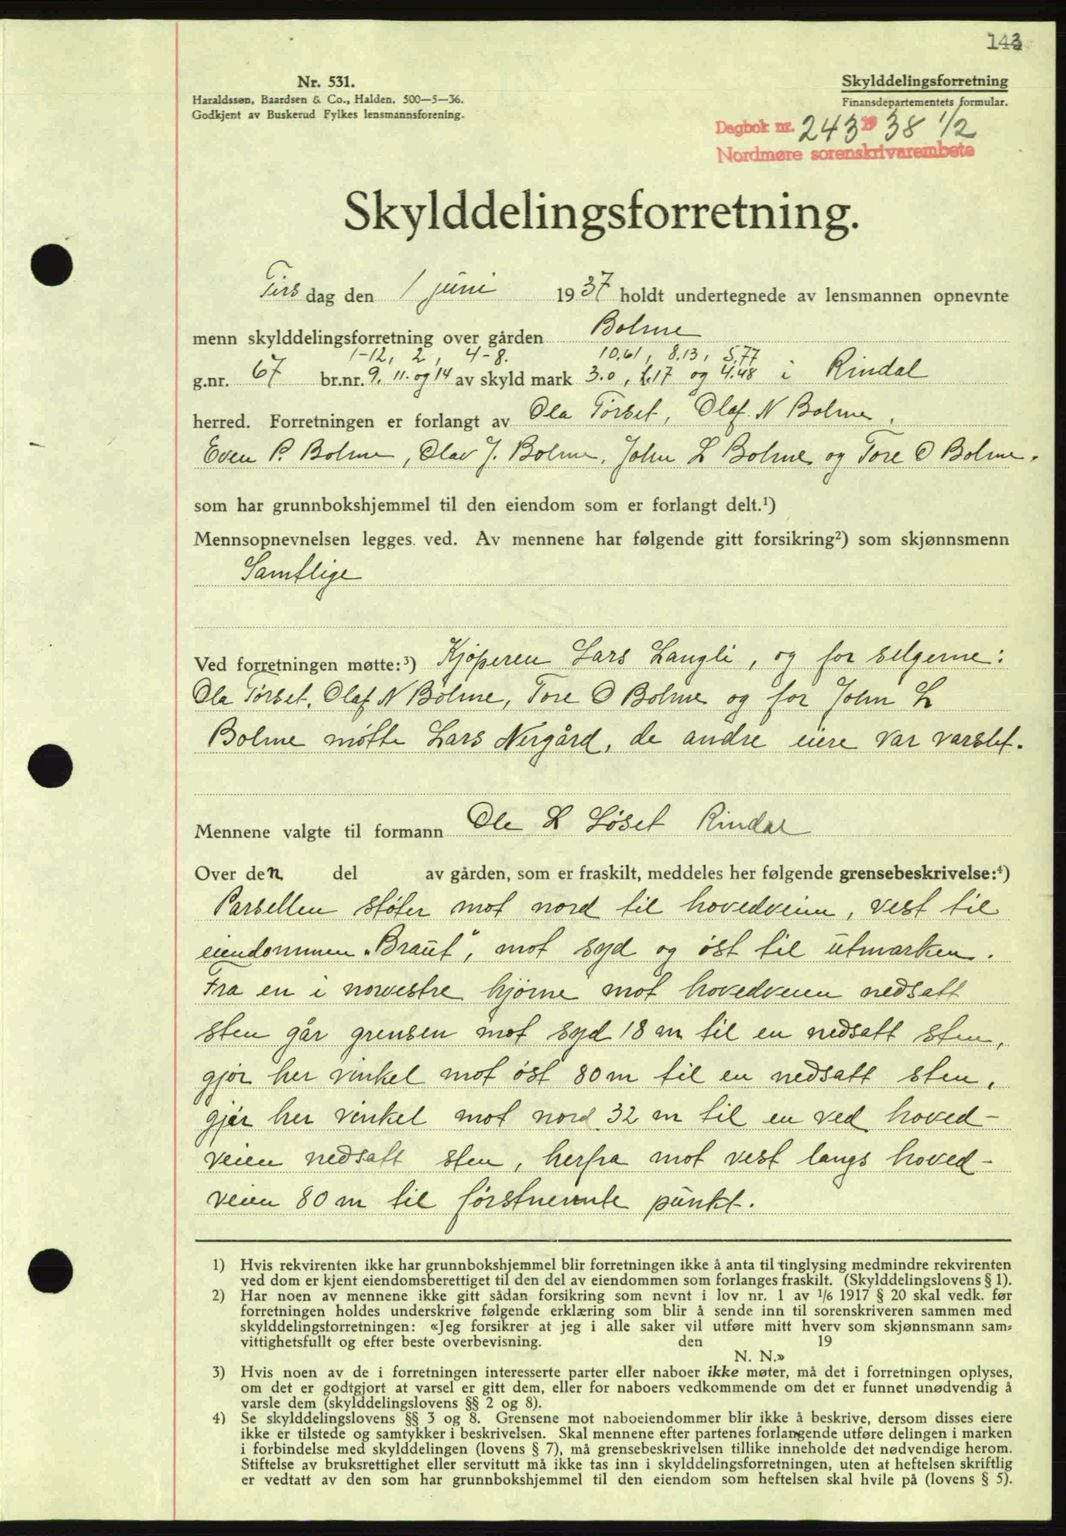 143
Nr. 531.
Haraldssøn, Baardsen & Co., Halden. 500—5—36.
Godkjent av Buskerud Fylkes lensmannsforening.
Skylddelingsforretning
Finansdepartementets formular.
Dagbok nr. 243 19 38 1/2
Nordmøre sorenskrivarembete
Skylddelingsforretning.
Tirs dag den 1 juni 1937 holdt undertegnede av lensmannen opnevnte
menn skylddelingsforretning over gården Bolme
1-12, 2, 4-8. 10.61, 8.13, 5.77
g.nr. 67 br.nr. 9, 11. og 14 av skyld mark 3.0, 1.17 og 4.48 i Rindal
herred. Forretningen er forlangt av Ola Tørset, Olaf N Bolme,
Even P. Bolme, Olav J. Bolme, John L Bolme og Tore O Bolme.
som har grunnbokshjemmel til den eiendom som er forlangt delt.¹)
Mennsopnevnelsen legges ved. Av mennene har følgende gitt forsikring²) som skjønnsmenn
Samtlige
Ved forretningen møtte:³) Kjøperen Lars Langli, og for selgerne:
Ola Tørset, Olaf N Bolme, Tore O Bolme og for John L
Bolme møtte Lars Nergård, de andre eiere var varslet.
Mennene valgte til formann Ole L Løset Rindal
Over den del av gården, som er fraskilt, meddeles her følgende grensebeskrivelse:⁴)
Parsellen støter mot nord til hovedveien, vest til
eiendommen "Braut", mot syd og øst til utmarken.
Fra en i norvestre hjørne mot hovedveien nedsatt
sten går grensen mot syd 18 m til en nedsatt sten,
gjør her vinkel mot øst 80 m til en nedsatt sten,
gjør her vinkel mot nord 32 m til en ved hoved-
veien nedsatt sten, herfra mot vest langs hoved-
veien 80 m til førstnevnte punkt.
1) Hvis rekvirenten ikke har grunnbokshjemmel blir forretningen ikke å anta til tinglysing medmindre rekvirenten
ved dom er kjent eiendomsberettiget til den del av eiendommen som forlanges fraskilt. (Skylddelingslovens § 1).
2) Har noen av mennene ikke gitt sådan forsikring som nevnt i lov nr. 1 av 1/6 1917 § 20 skal vedk. før
forretningen holdes underskrive følgende erklæring som blir å sende inn til sorenskriveren sammen med
skylddelingstorretningen: «Jeg forsikrer at jeg i alle saker vil utføre mitt hverv som skjønnsmann sam-
vittighetsfullt og efter beste overbevisning. den 19
N. N.»
3) Hvis noen av de i forretningen interesserte parter eller naboer ikke møter, må det i forretningen oplyses,
om det er godtgjort at varsel er gitt dem, eller for naboers vedkommende om det er funnet unødvendig å
varsle dem (skylddelingslovens §§ 2 og 8).
4) Se skylddelingslovens §§ 3 og 8. Grensene mot naboeiendommer blir ikke å beskrive, dersom disses eiere
ikke er tilstede og samtykker i beskrivelsen. Skal mennene efter partenes forlangende utføre delingen i marken
i forbindelse med skylddelingen (lovens § 7), må grensebeskrivelsen tillike inneholde det nødvendige herom.
Stiftelse av bruksrettighet eller servitutt må ikke tas inn i skylddelingsforretningen, uten at heftelsen skriftlig
er vedtatt av den som har grunnbokshjemmel til den eiendom som heftelsen skal hvile på (lovens § 5).